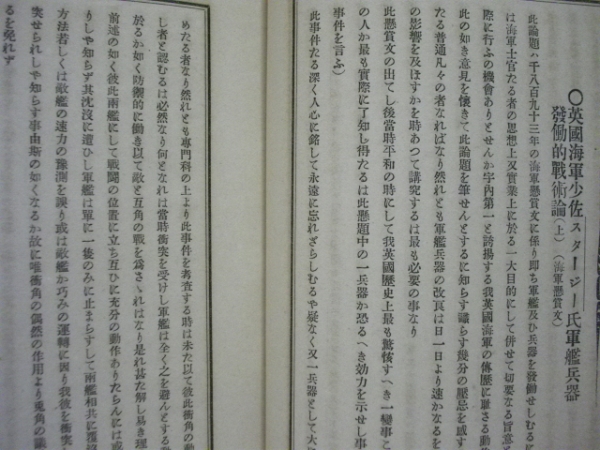 ○英國海軍少佐スタージー氏軍艦兵器
發働的戰術論(上)(海軍懸賞文)
此論題ハ千八百九十三年の海軍懸賞文に係り卽ち軍艦及ひ兵器を發働せしむるに
は海軍士官たる者の思想上又實業上に於る一大目的にして併せて切要なる旨意
際に行ふの機會ありとせんか宇內第一と誇揚する我英國海軍の傳歷に罹さる動
此の如き意見を懷きて此論題を筆せんとするに知らす識らす幾分の壓忌を感す
たる普通凡々の者なれはなり然れとも軍艦兵器の改良は日一日より速かなるを
の影響を及ほすかを時あつて講究するは最も必要の事なり
此懸賞文の出てし後當時平和の時にして我英國歷史上最も驚愕すへき一變事こ
の人か最も實際に了知し得たるは此懸題中の一兵器か恐るへき効力を示せし事
事件を言ふ)
此事件たる深く人心に銘して永遠に忘れさらしむるや疑なく又一兵器として大
めたる者なり然れとも專門科の上より此事件を考査する時は未た以て彼此衝角の動
し者と認むるは必然なり何となれは當時衝突を受けし軍艦は全く之を避んとする
於るか如く防禦的に働き以て敵と互角の戰を爲さゝれはなり是れ甚た解し易き理
前述の如く彼此兩艦にして戰鬪の位置に立ち互ひに充分の動作ありたらんには或
りしや知らす其沈沒に遭ひし軍艦は單に一隻のみに止まらすして兩艦相共に覆沒
方法若しくは敵艦の速力の豫測を誤り或は敵艦か巧みの運轉に因り我彼を衝突
突せられしや知らす事由斯の如くなるか故に唯衝角の偶然の作用より兎角の議
るを免れす